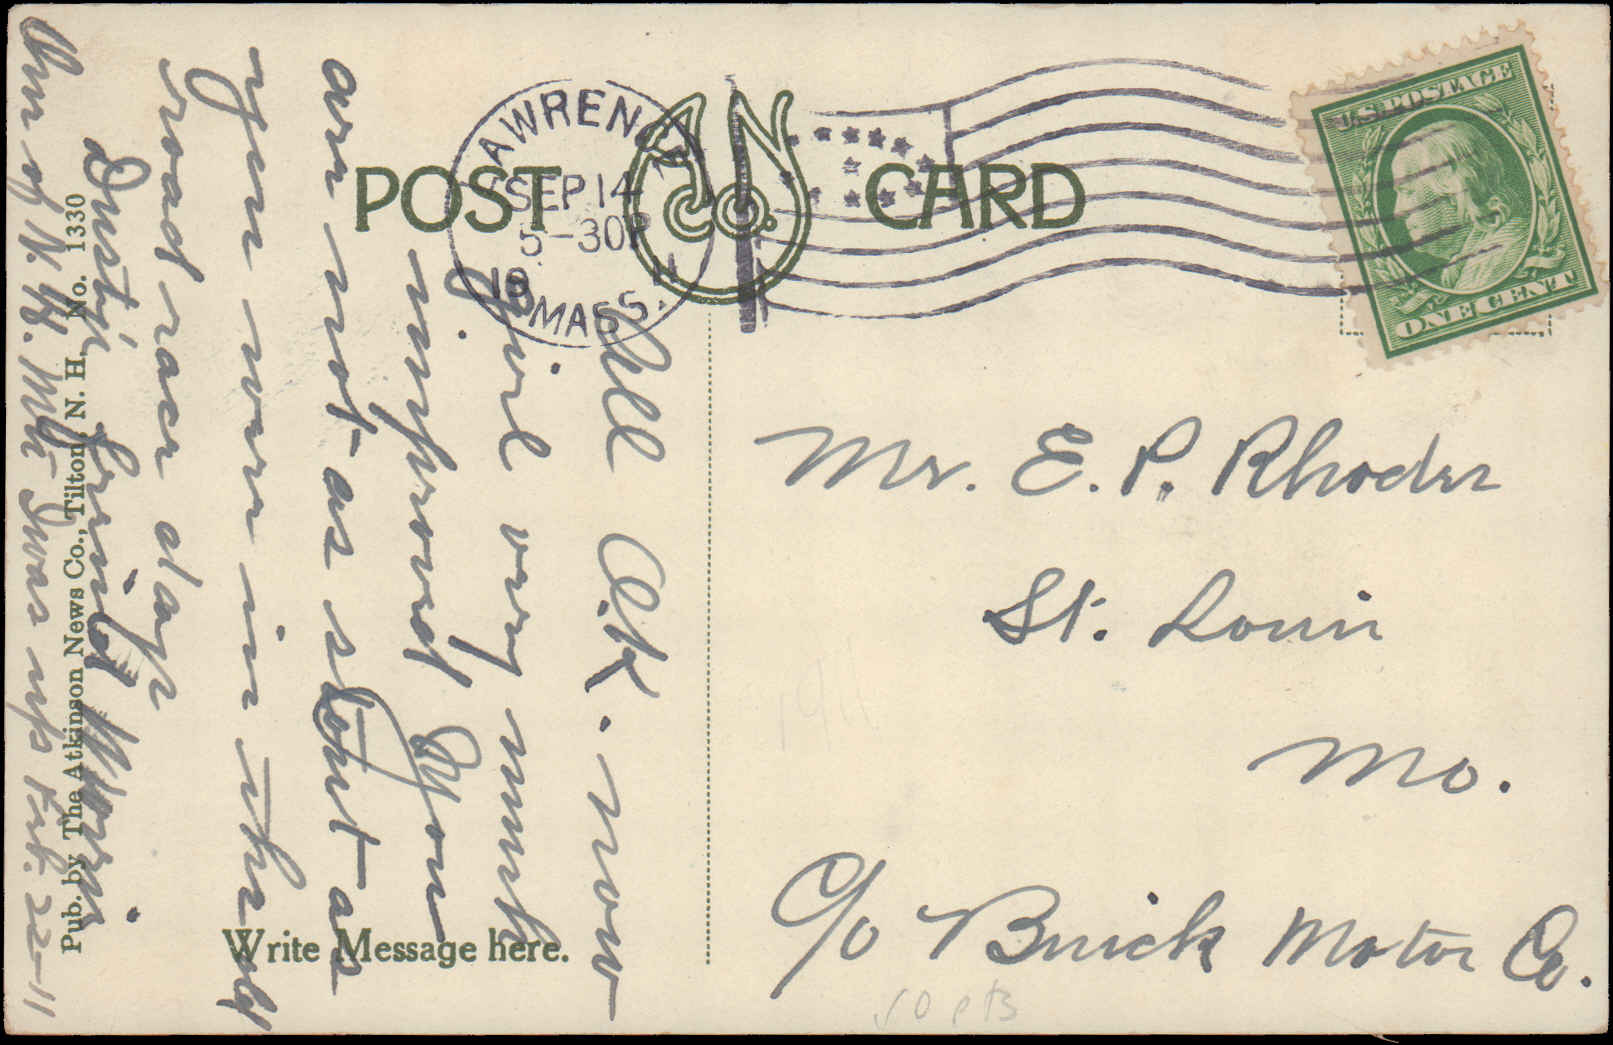 POST CARD
AN Co.
LAWRENCE
SEP 14
5-30P
19 11
MASS.
U.S. POSTAGE
ONE CENT
All O.K. now
girl very much
improved you
are not as stout as
you were in those old
road race days
Dusty friend
One of N.H. Mts I was up Feb. 22-11
Pub. by The Atkinson News Co., Tilton, N. H. No. 1330
Write Message here.
Mr. E. P. Rhodes
St. Louis
Mo.
c/o Buick Motor Co.
1911
50 pts